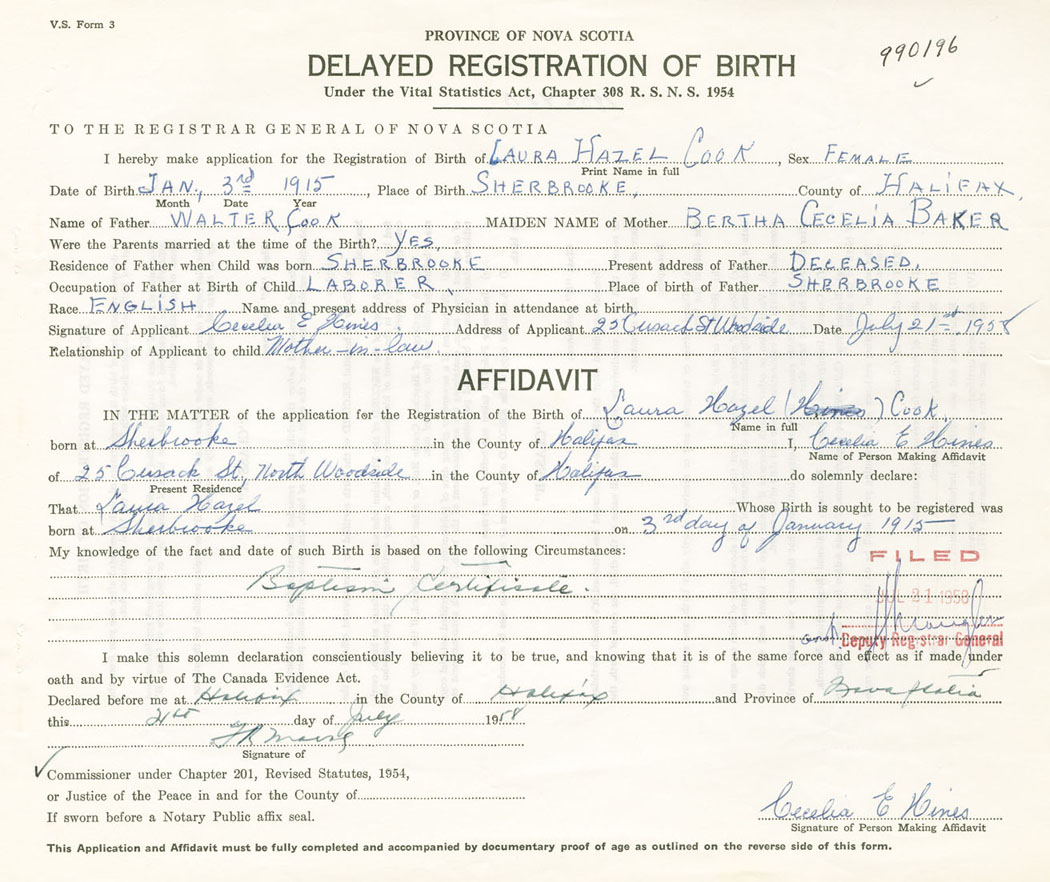 V.S. Form 3
PROVINCE OF NOVA SCOTIA
990196
DELAYED REGISTRATION OF BIRTH
Under the Vital Statistics Act, Chapter 308 R. S. N. S. 1954
TO THE REGISTRAR GENERAL OF NOVA SCOTIA
I hereby make application for the Registration of Birth of LAURA HAZEL COOK, Sex FEMALE
Print Name in full
Date of Birth JAN, 3rd 1915, Place of Birth SHERBROOKE, County of HALIFAX
Month Date Year
Name of Father WALTER COOK MAIDEN NAME of Mother BERTHA CECELIA BAKER
Were the Parents married at the time of the Birth? YES,
Residence of Father when Child was born SHERBROOKE Present address of Father DECEASED,
Occupation of Father at Birth of Child LABORER, Place of birth of Father SHERBROOKE
Race ENGLISH Name and present address of Physician in attendance at birth
Signature of Applicant Cecelia E Hines. Address of Applicant 25 Cusack St Woodside Date July 21st 1958
Relationship of Applicant to child Mother-in-law.
AFFIDAVIT
IN THE MATTER of the application for the Registration of the Birth of Laura Hazel ( ) Cook
Name in full
born at Sherbrooke in the County of Halifax I, Cecelia E Hines
Name of Person Making Affidavit
of 25 Cusack St, North Woodside in the County of Halifax do solemnly declare:
Present Residence
That Laura Hazel Whose Birth is sought to be registered was
born at Sherbrooke on 3rd day of January 1915
My knowledge of the fact and date of such Birth is based on the following Circumstances:
FILED
Baptism Certificate.
JUL 21 1958
Deputy Registrar General
I make this solemn declaration conscientiously believing it to be true, and knowing that it is of the same force and effect as if made under
oath and by virtue of The Canada Evidence Act.
Declared before me at Halifax in the County of Halifax and Province of Nova Scotia
this 21st day of July 1958
Signature of
Commissioner under Chapter 201, Revised Statutes, 1954,
or Justice of the Peace in and for the County of
If sworn before a Notary Public affix seal.
Cecelia E Hines
Signature of Person Making Affidavit
This Application and Affidavit must be fully completed and accompanied by documentary proof of age as outlined on the reverse side of this form.